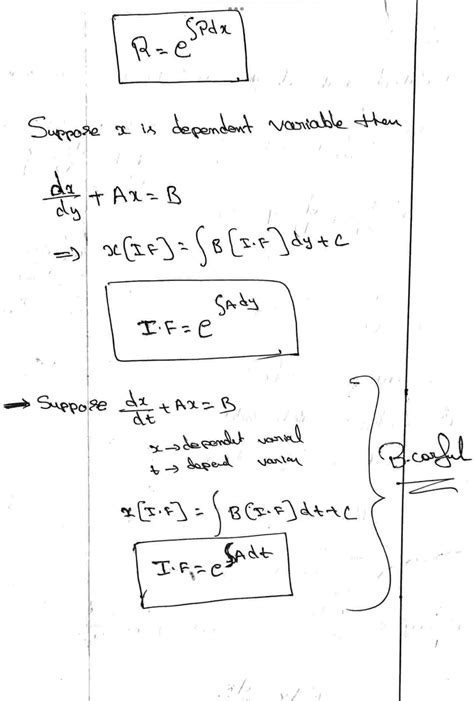 R = e^∫Pdx
Suppose x is dependent variable then
dx/dy + Ax = B
⇒ x[I.F] = ∫ B [I.F] dy + C
I.F = e^∫A dy
→ Suppose dx/dt + Ax = B
x → dependet varial
t → depend varia
x[I.F] = ∫ B (I.F) dt + C
B.careful
I.F. = e^∫A dt